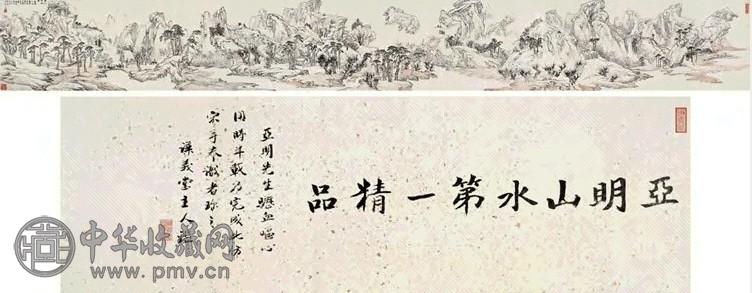 亞明山水第一精品
亞明先生瀝血嘔心
用時半載乃完成此仿
宋手卷識者珍之
義堂主人
中华收藏网
www.pmv.cn